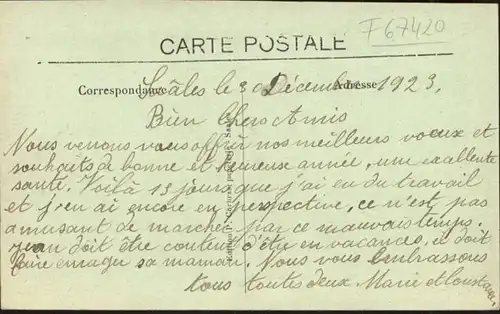 F67420
CARTE POSTALE
Correspondance
Adresse
Scâles le 30 Décembre 1923,
Bien Chers Amis
Nous venons vous offrir nos meilleurs voeux et
souhaits de bonne et heureuse année, une exellente
santé. Voilà 15 jours que j'ai eu du travail
et j'en ai encore en perspective, ce n'est pas
amusant de marcher par ce mauvais temps.
doit être content d'être en vacances, il doit
faire enrager sa maman. Nous vous embrassons
tous toutes deux Marie et